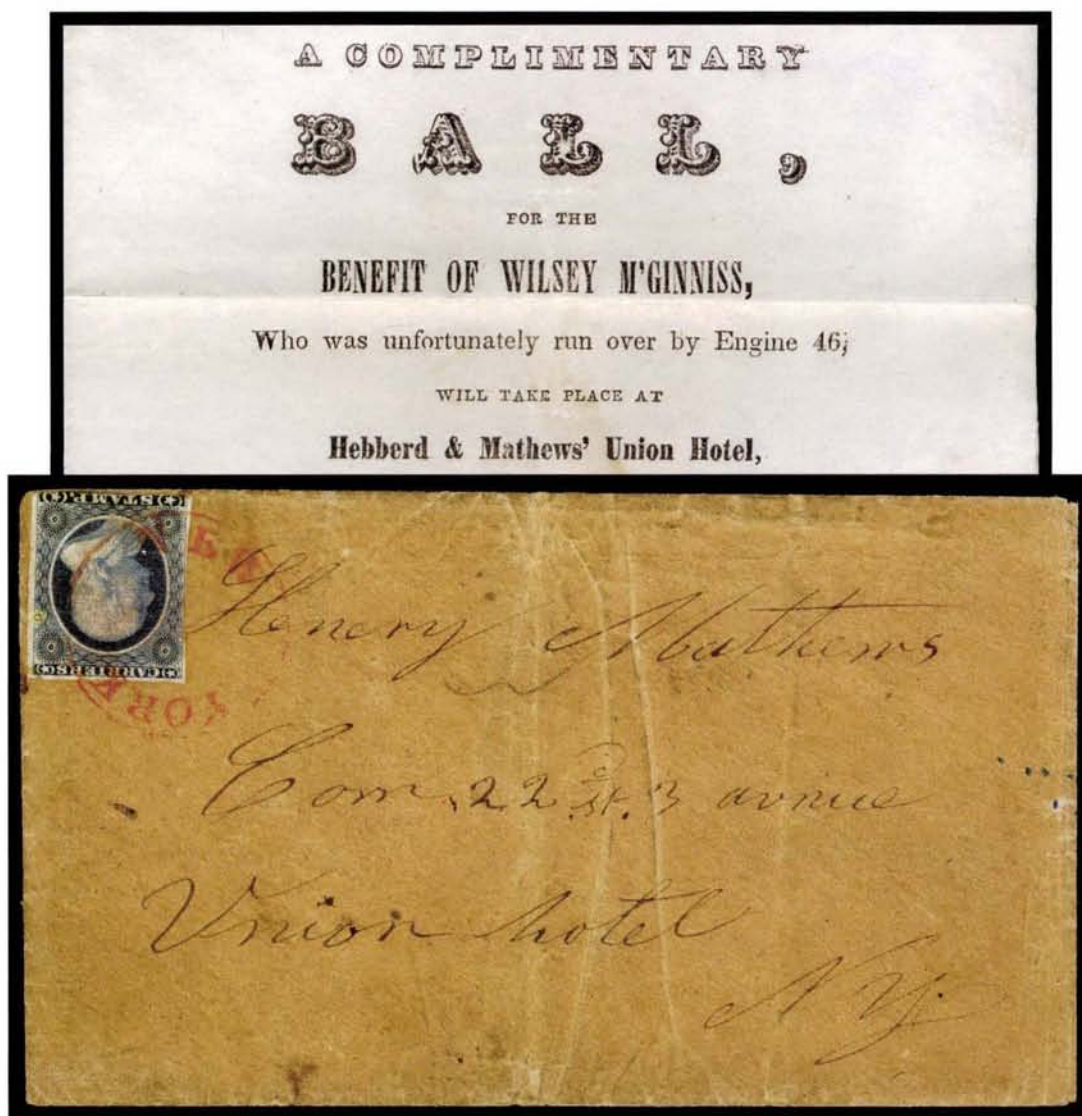 A COMPLIMENTARY
BALL,
FOR THE
BENEFIT OF WILSEY M'GINNISS,
Who was unfortunately run over by Engine 46;
WILL TAKE PLACE AT
Hebberd & Mathews' Union Hotel,
STAMP
CARRIERS
YORK
Henery Mathews
Corn 22 st. 3 avnue
Union hotel
N Y.